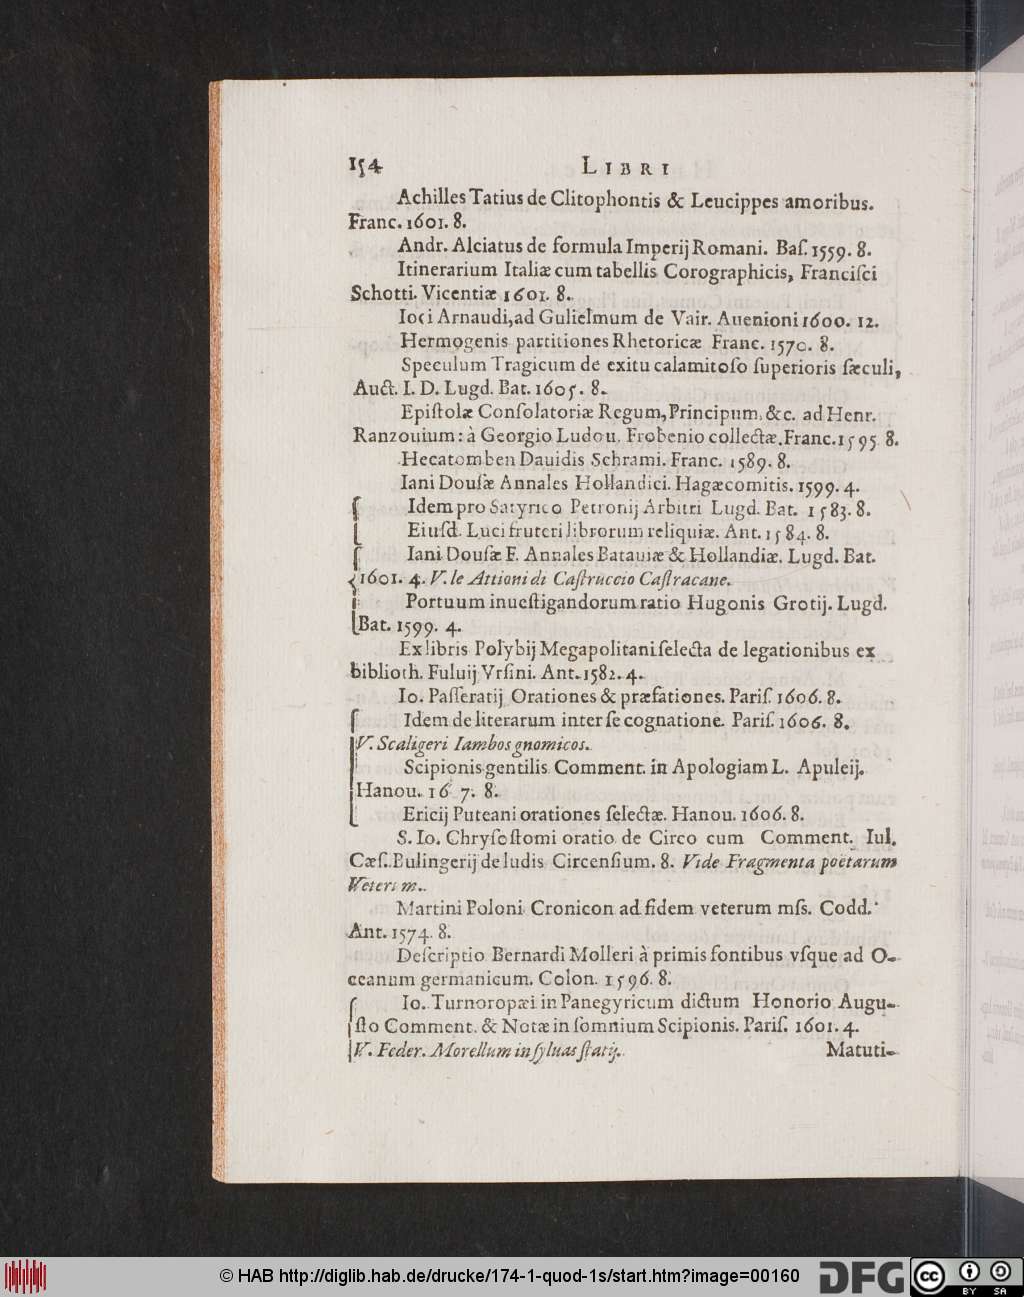 154 LIBRI
Achilles Tatius de Clitophontis & Leucippes amoribus.
Franc. 1601. 8.
Andr. Alciatus de formula Imperij Romani. Baſ. 1559. 8.
Itinerarium Italiæ cum tabellis Corographicis, Franciſci
Schotti. Vicentiæ 1601. 8.
Ioci Arnaudi, ad Gulielmum de Vair. Auenioni 1600. 12.
Hermogenis partitiones Rhetoricæ Franc. 1570. 8.
Speculum Tragicum de exitu calamitoſo ſuperioris ſæculi,
Auct. I. D. Lugd. Bat. 1605. 8.
Epiſtolæ Conſolatoriæ Regum, Principum, &c. ad Henr.
Ranzouium: à Georgio Ludou. Frobenio collectæ. Franc. 1595. 8.
Hecatomben Dauidis Schrami. Franc. 1589. 8.
Iani Douſæ Annales Hollandici. Hagæcomitis. 1599. 4.
Idem pro Satyrico Petronij Arbitri Lugd. Bat. 1583. 8.
Eiuſd. Luci fruteri librorum reliquiæ. Ant. 1584. 8.
Iani Douſæ F. Annales Batauiæ & Hollandiæ. Lugd. Bat.
1601. 4. V. le Attioni di Caſtruccio Caſtracane.
Portuum inueſtigandorum ratio Hugonis Grotij. Lugd.
Bat. 1599. 4.
Ex libris Polybij Megapolitani ſelecta de legationibus ex
biblioth. Fuluij Vrſini. Ant. 1582. 4.
Io. Paſſeratij Orationes & præfationes. Pariſ. 1606. 8.
Idem de literarum inter ſe cognatione. Pariſ. 1606. 8.
V. Scaligeri Iambos gnomicos.
Scipionis gentilis Comment. in Apologiam L. Apuleij.
Hanou. 16 7. 8.
Ericij Puteani orationes ſelectæ. Hanou. 1606. 8.
S. Io. Chryſoſtomi oratio de Circo cum Comment. Iul.
Cæſ. Bulingerij de ludis Circenſium. 8. Vide Fragmenta poëtarum
Veter m.
Martini Poloni Cronicon ad fidem veterum mſs. Codd.
Ant. 1574. 8.
Deſcriptio Bernardi Molleri à primis fontibus vſque ad O-
ceanum germanicum. Colon. 1596. 8.
Io. Turnoropæi in Panegyricum dictum Honorio Augu-
ſto Comment. & Notæ in ſomnium Scipionis. Pariſ. 1601. 4.
V. Feder. Morellum in ſyluas ſtatij.
Matuti-
© HAB http://diglib.hab.de/drucke/174-1-quod-1s/start.htm?image=00160 DFG cc BY SA